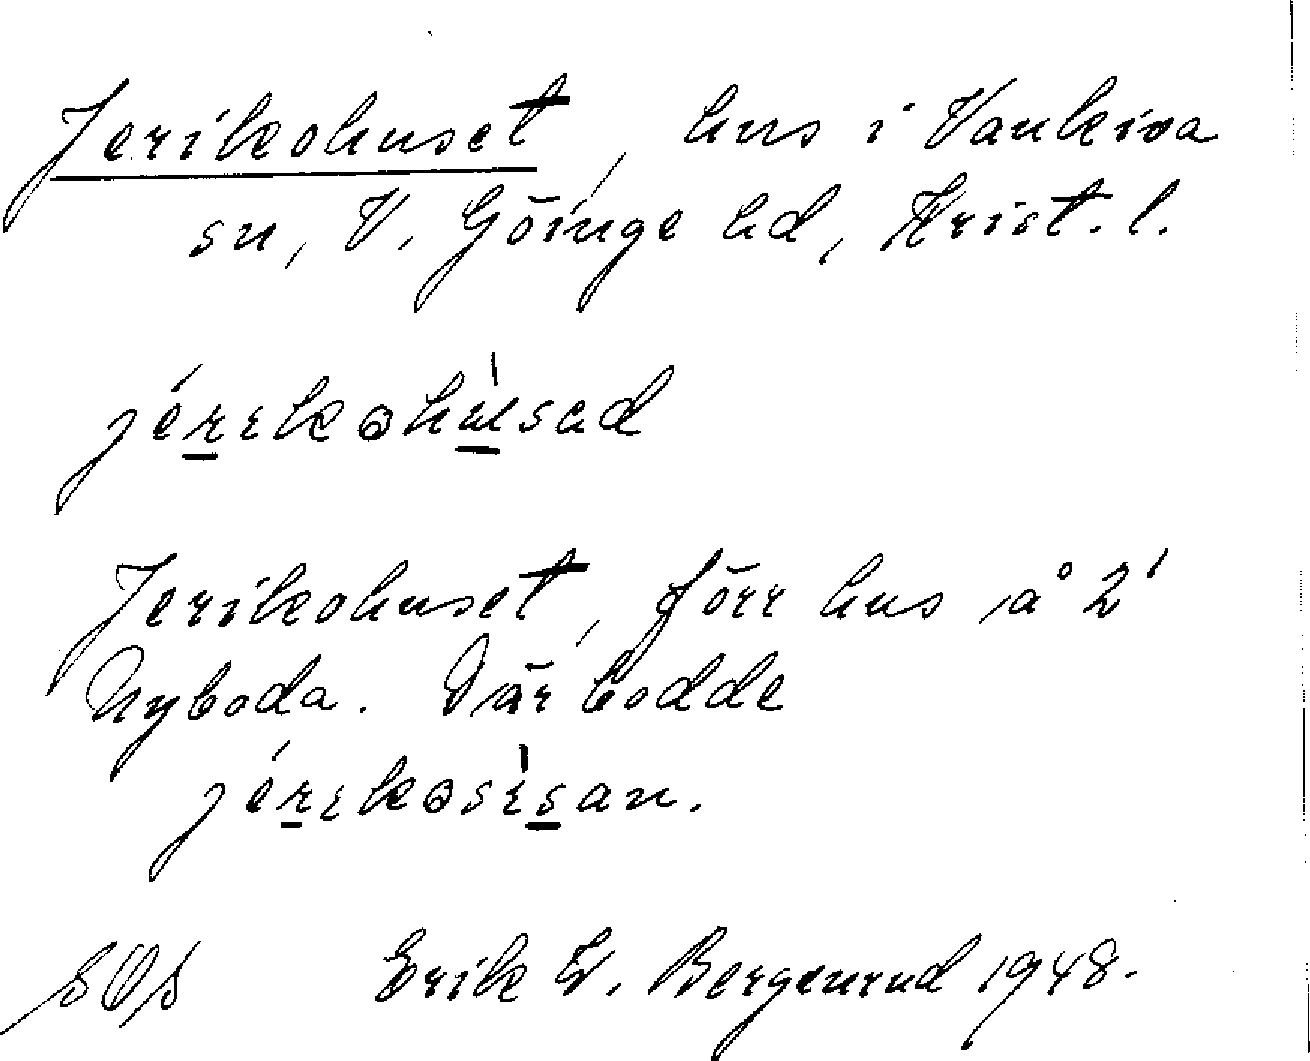 Jerikohuset, hus i Vankiva
sn, V. Göinge hd, Krist. l.
jérikohùsad
Jerikohuset, förr hus å 2'
Nyboda. Där bodde
jérikosìsan.
Erik W. Bergenrud 1948.